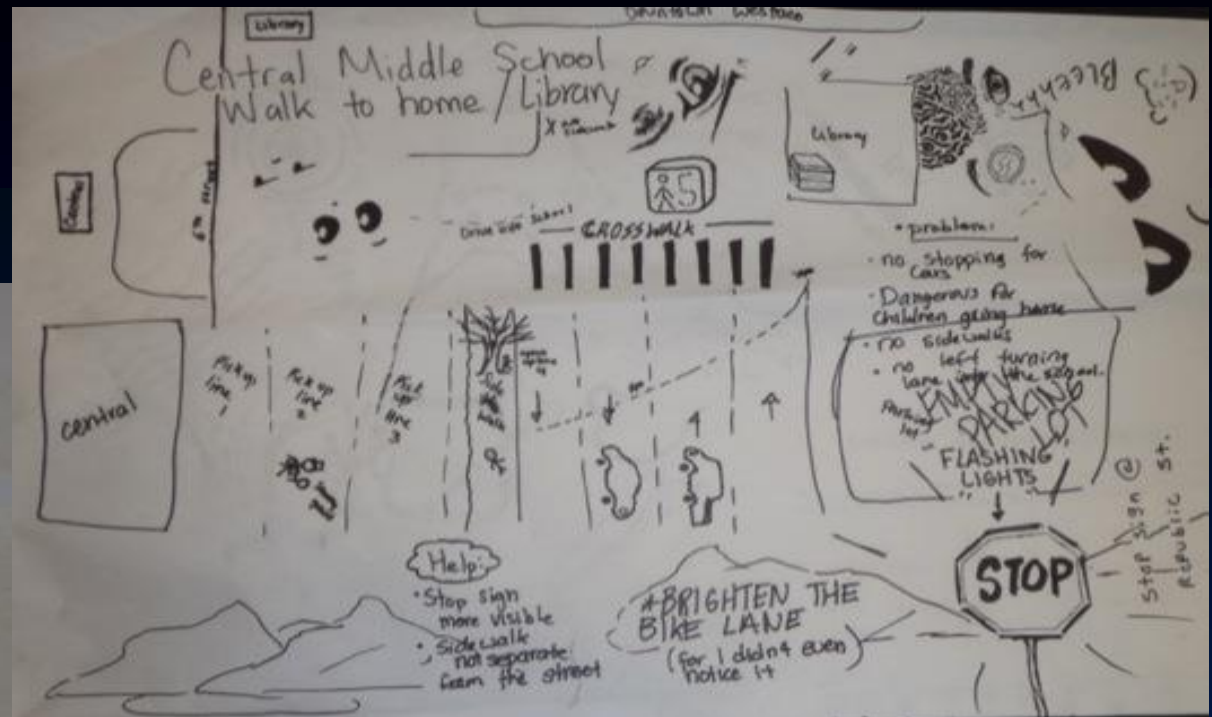 Library
Central Middle School
Walk to home / Library
Library
Central
6th street
5
CROSSWALK
Drive into school
• problem:
• no stopping for
cars
• Dangerous for
children going home
• no sidewalks
• no left turning
lane into the school.
Parking
lot
EMPTY
PARKING
LOT
FLASHING
LIGHTS
Bleehhh
central
Pick up
line 1
Pick up
line 2
Pick up
line 3
Side
walk
Help:
• Stop sign
more visible
• Sidewalk
not separate
from the street
*BRIGHTEN THE
BIKE LANE
(for I didn't even
notice it)
STOP
Stop sign @
Republic St.